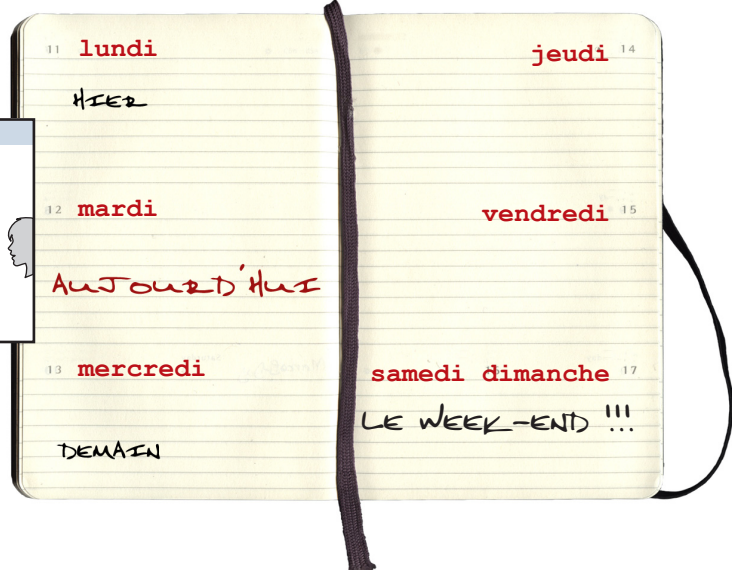 11 lundi
HIER
12 mardi
AUJOURD'HUI
13 mercredi
DEMAIN
jeudi 14
vendredi 15
samedi dimanche 17
LE WEEK-END !!!